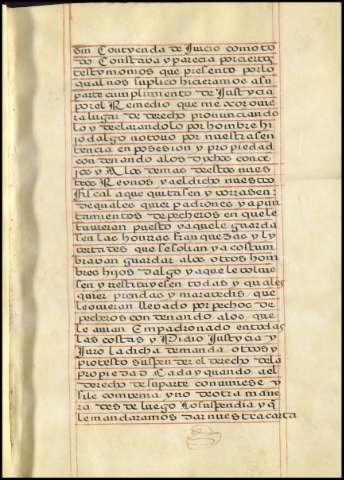 sin Contyenda de Juicio como to
do Constava y parecia por cierto
testymonios que presento por lo
qual nos suplico hicieramos a su
parte cumplimiento de Justycia
por el Remedio que mexor ouie
ra lugar de derecho pronunciando
lo y declarandolo por hombre hi
jo dalgo notorio por nuestra sen
tencia en posesion y propiedad
condenando a los dychos conce
jos y A los demas destos nues
tros Reynos y a el dicho nuestro
fiscal a que quitasen y borrasen
de quales quier padrones y apun
tamientos de pecheros en que le
tuvieran puesto y a que le guarda
sen las honrras franquezas y ly
bertades que se solian y a costum
bravan guardar a los otros hom
bres hijos dalgo y a que le bolvie
sen y restituyesen todas y quales
quier prendas y maravedis que
le ovieran llevado por pecho de
pecheros condenando a los que
le avian Empadronado en todas
las costas y Pidio Justycia y
Juro la dicha demanda otrosy
protesto suspender el derecho de la
propiedad Cada y quando a el
derecho de su parte conviniese y
si le convenia y no de otra mane
ra desde luego lo suspendia y q
le mandaramos dar nuestra carta